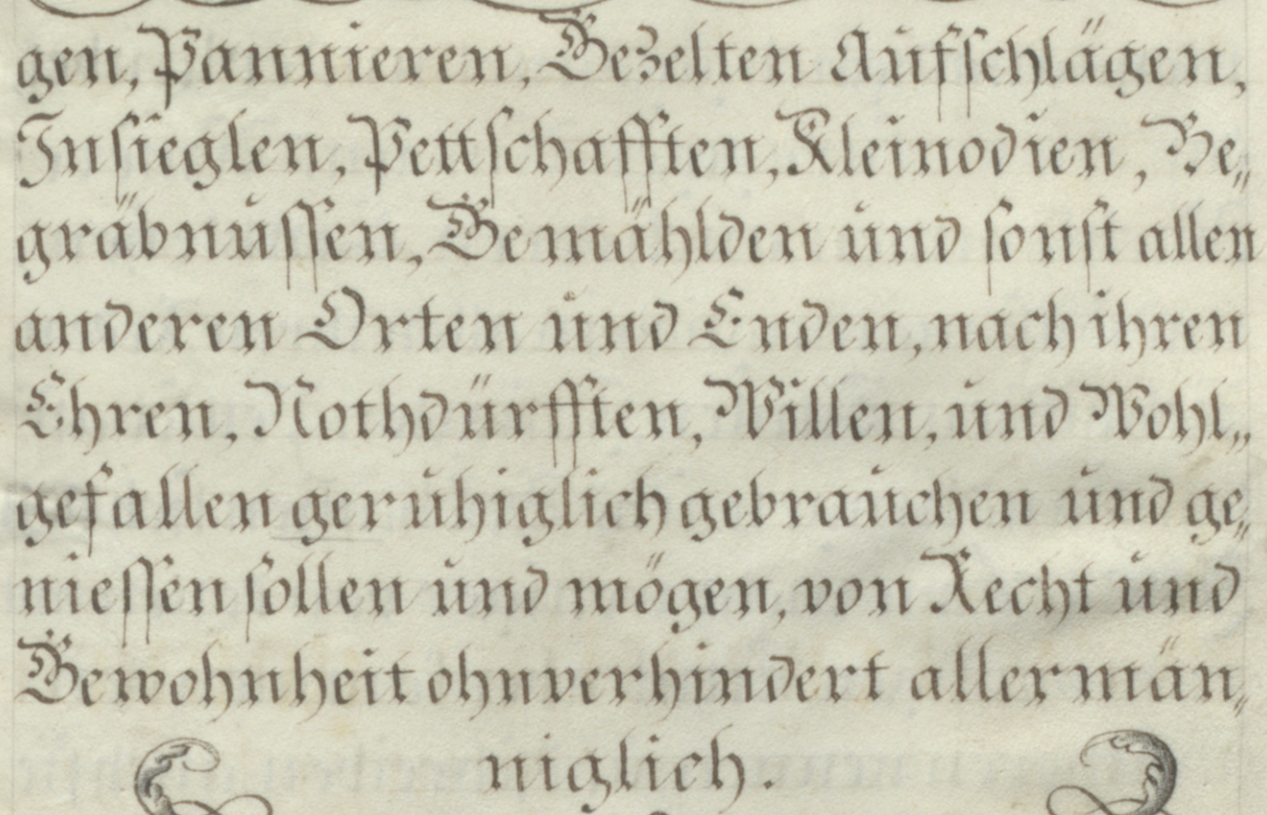 gen, Pannieren, Gezelten Aufschlägen,
Insieglen, Pettschafften, Kleinodien, Be„
gräbnussen, Gemählden und sonst allen
anderen Orten und Enden, nach ihren
Ehren, Nothdürfften, Willen, und Wohl„
gefallen geruhiglich gebrauchen und ge„
niessen sollen und mögen, von Recht und
Gewohnheit ohnverhindert allermän„
niglich.